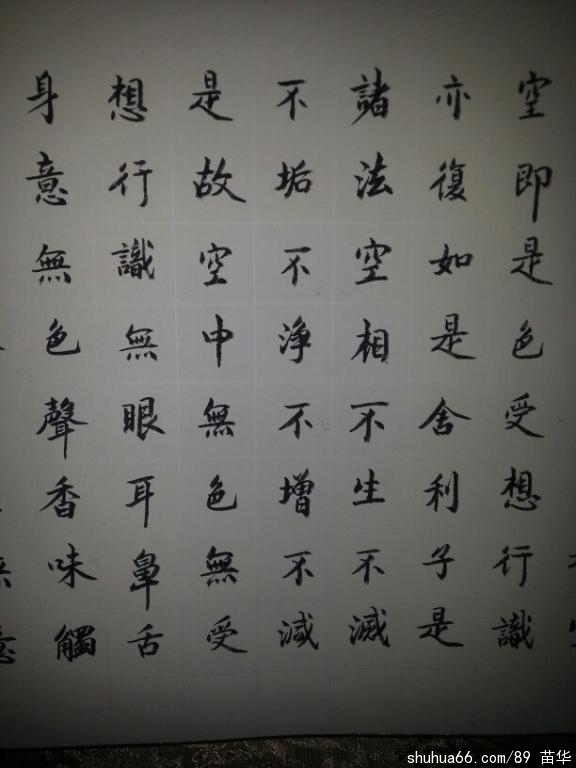 空即是色受想行識
亦復如是舍利子是
諸法空相不生不滅
不垢不淨不增不減
是故空中無色無受
想行識無眼耳鼻舌
身意無色聲香味觸
shuhua66.com/89 苗华